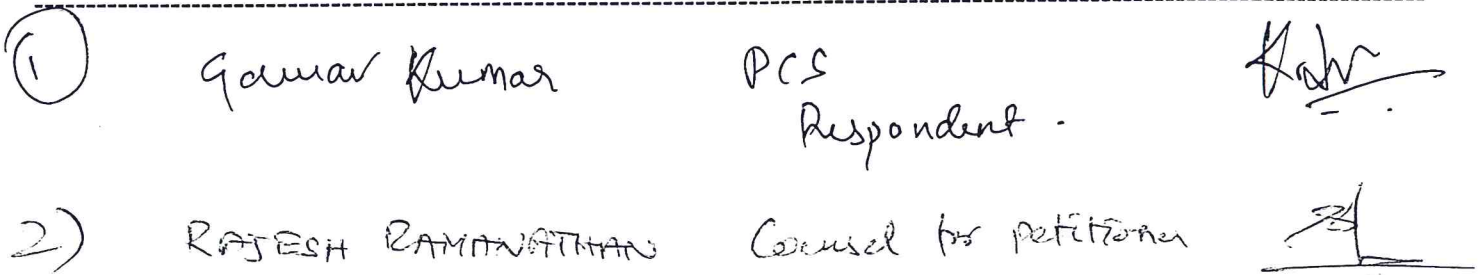 ① Gaurav Kumar PCS
Respondent.
2) RAJESH RAMANATHAN Counsel for petitioner